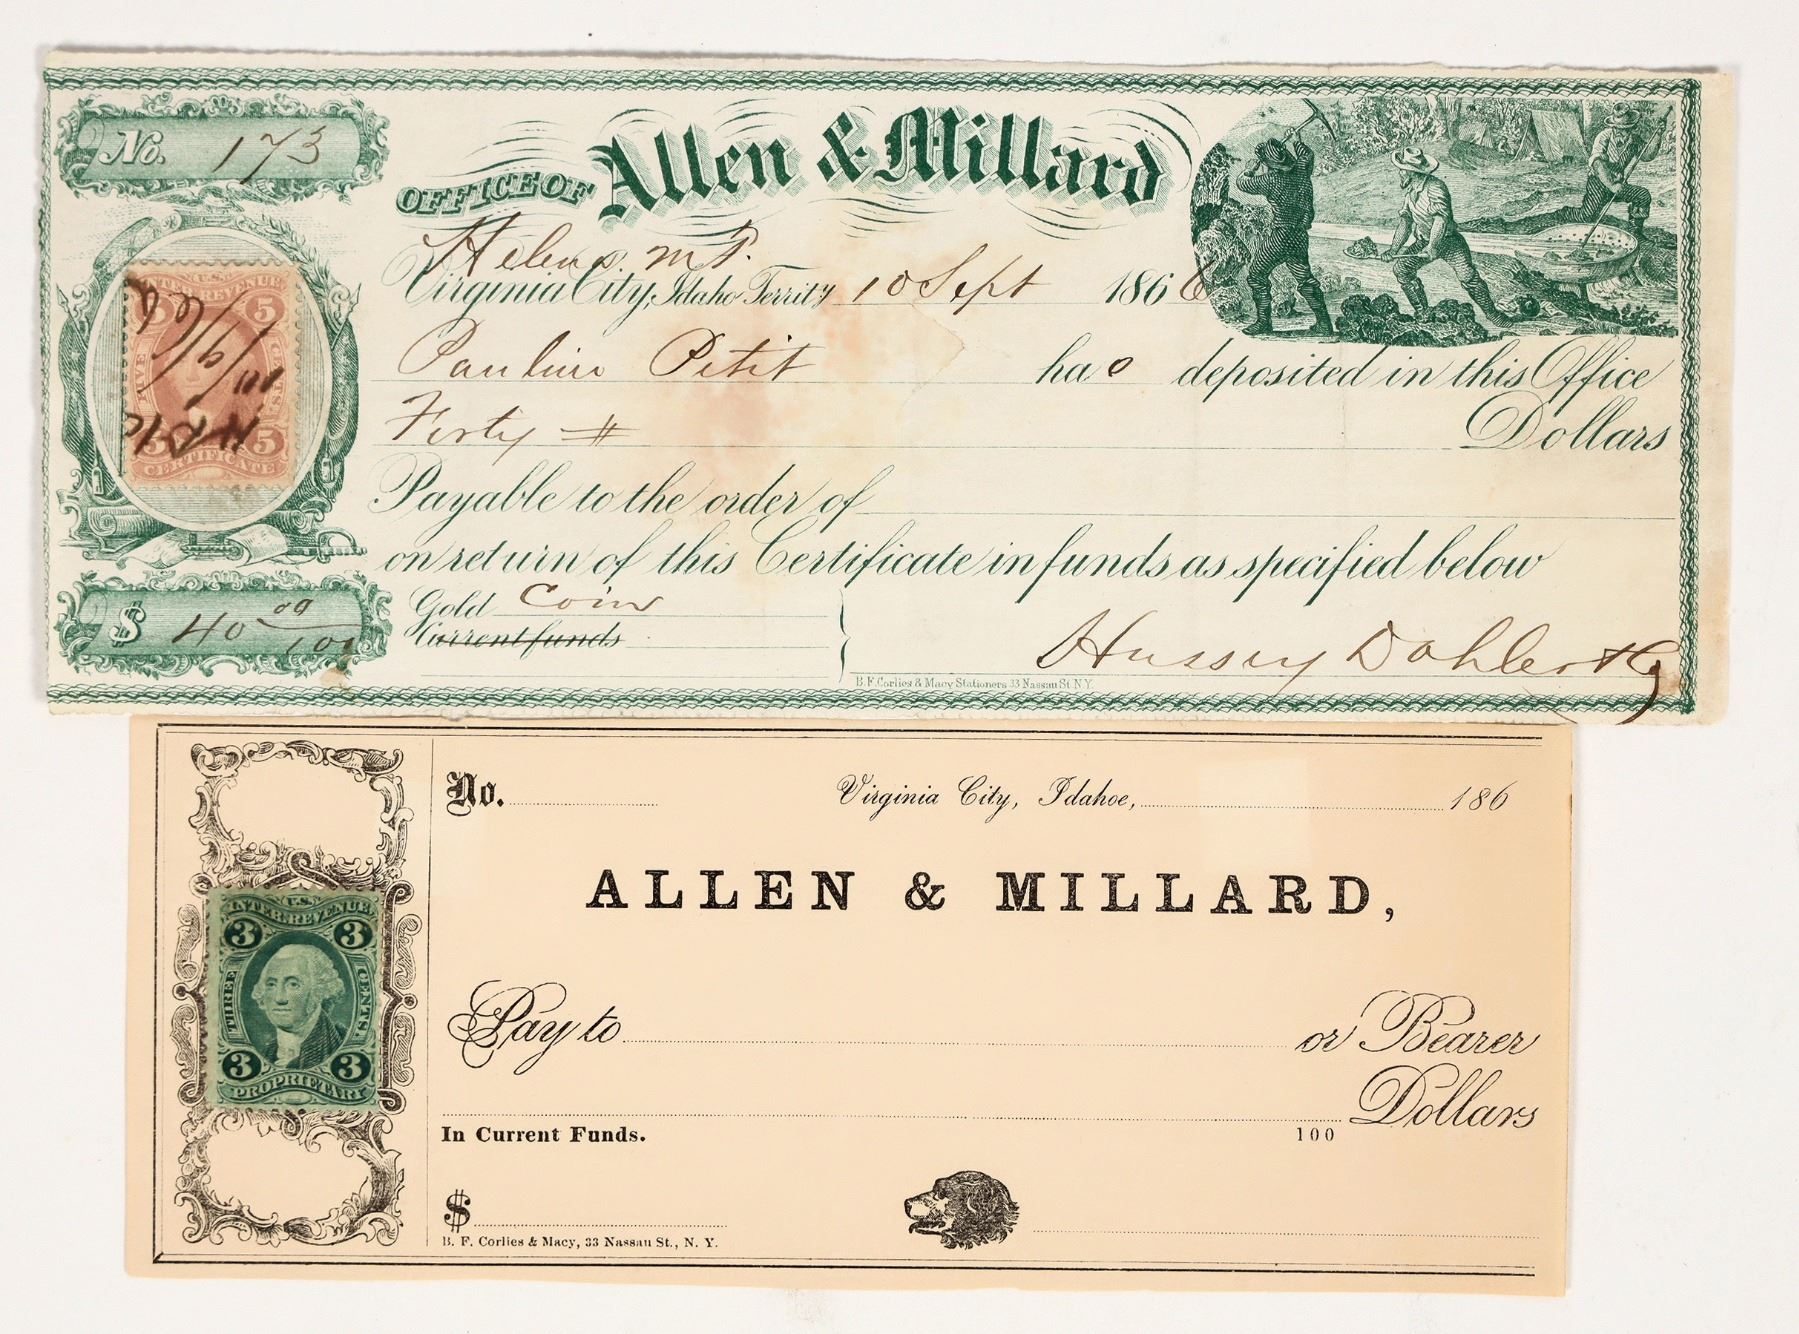 No. 173
OFFICE OF Allen & Millard
Helena M.T.
Virginia City, Idaho Territy 10 Sept 1866
U.S. INTER. REVENUE
5 5
FIVE CENTS
5 5
CERTIFICATE
10/9/66
Pauline Petit has deposited in this Office
Forty # Dollars
Payable to the order of
on return of this Certificate in funds as specified below
$ 40 00/100
Gold Coin
Current funds
Hussey Dahler & Co
B.F. Corlies & Macy Stationers 33 Nassau St. N.Y.
No. Virginia City, Idahoe, 186
ALLEN & MILLARD,
U.S.
INTER. REVENUE.
3 3
THREE CENTS.
3 3
PROPRIETARY
Pay to or Bearer
Dollars
In Current Funds. 100
$
B. F. Corlies & Macy, 33 Nassau St., N. Y.